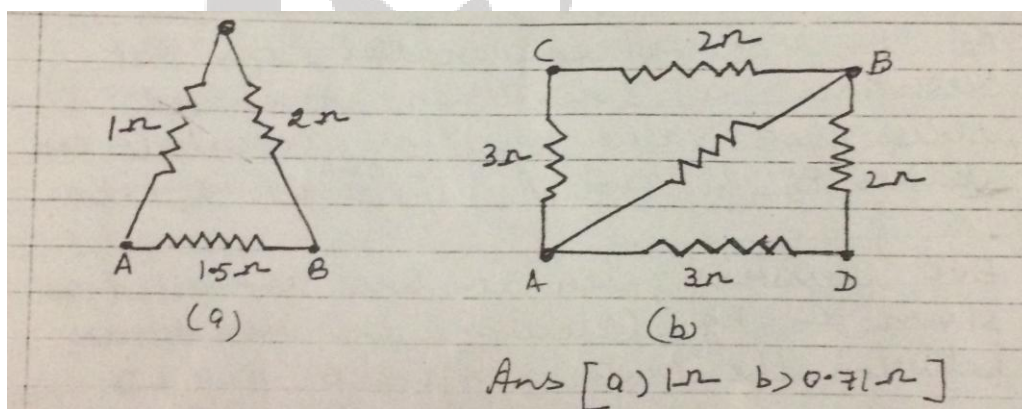 1Ω
2Ω
A
1.5Ω
B
(a)
C
2Ω
B
3Ω
2Ω
A
3Ω
D
(b)
Ans [a) 1Ω b) 0.71Ω]